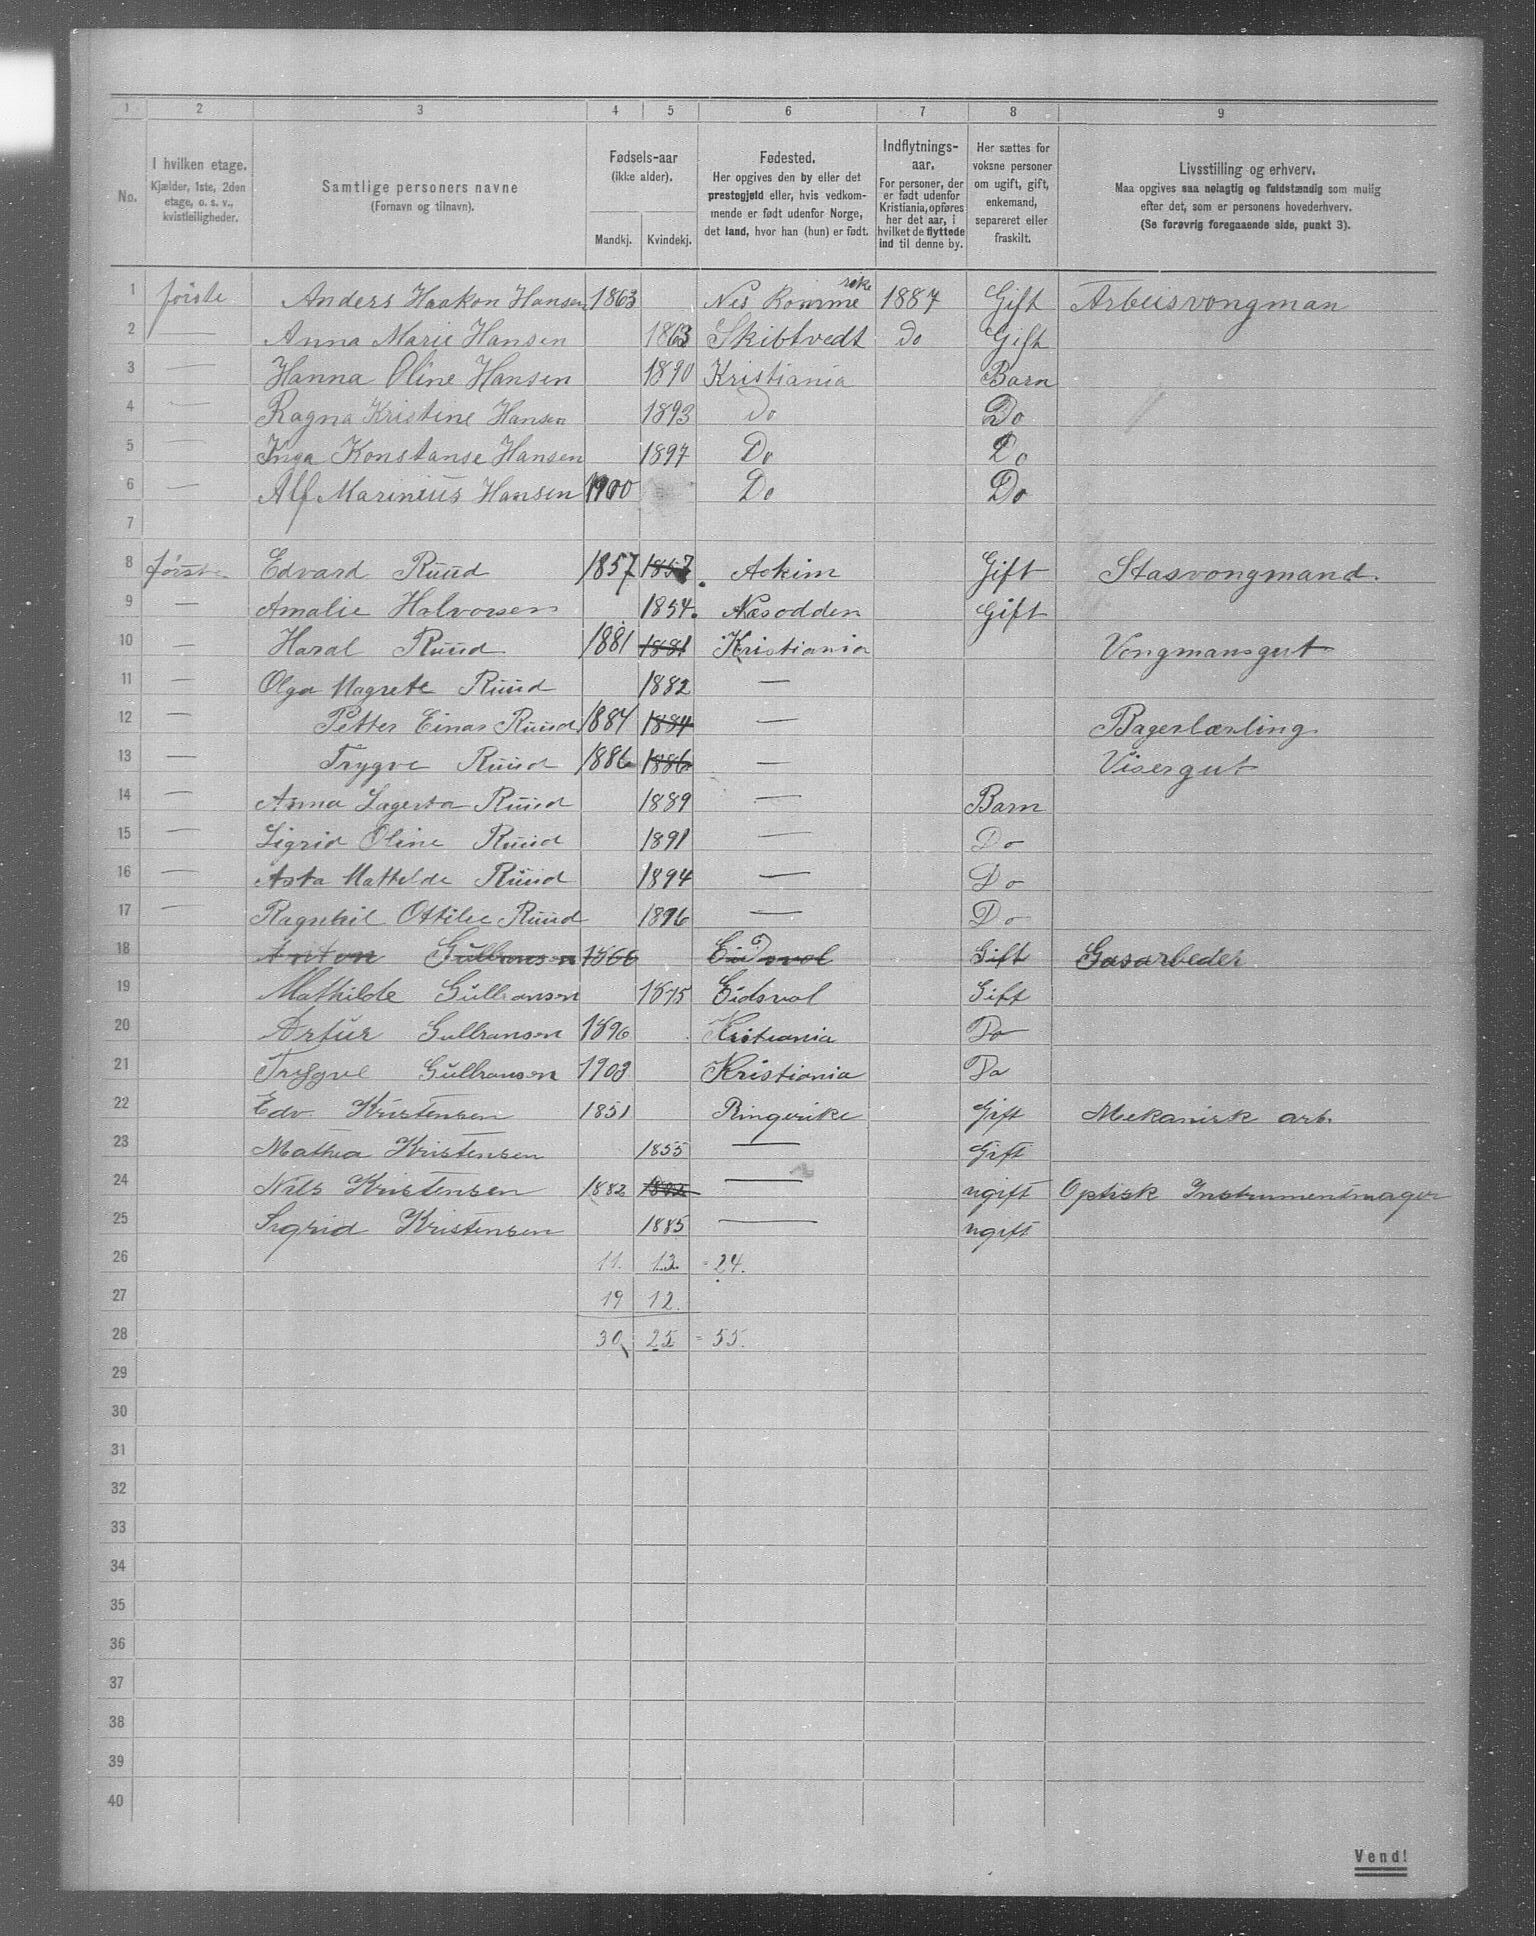 1 2 3 4 5 6 7 8 9
No.
I hvilken etage.
Kjælder, 1ste, 2den
etage, o. s. v.,
kvistleiligheder.
Samtlige personers navne
(Fornavn og tilnavn).
Fødsels-aar
(ikke alder).
Mandkj. Kvindekj.
Fødested.
Her opgives den by eller det
prestegjeld eller, hvis vedkom-
mende er født udenfor Norge,
det land, hvor han (hun) er født.
Indflytnings-
aar.
For personer, der
er født udenfor
Kristiania, opføres
her det aar, i
hvilket de flyttede
ind til denne by.
Her sættes for
voksne personer
om ugift, gift,
enkemand,
separeret eller
fraskilt.
Livsstilling og erhverv.
Maa opgives saa nøiagtig og fuldstændig som mulig
efter det, som er personens hovederhverv.
(Se forøvrig foregaaende side, punkt 3).
1 første Anders Haakon Hansen 1863 Nes Romme rike 1887 Gift Arbeisvongman
2 — Anna Marie Hansen 1863 Skibtvedt Do Gift
3 — Hanna Oline Hansen 1890 Kristiania Barn
4 — Ragna Kristine Hansen 1893 Do Do
5 — Inga Konstanse Hansen 1897 Do Do
6 — Alf Marinius Hansen 1900 Do Do
7
8 første Edvard Ruud 1857 1857 Askim Gift Stasvongmand.
9 — Amalie Halvorsen 1854. Næsodden Gift
10 — Haral Ruud 1881 1881 Kristiania Vongmansgut
11 — Olga Magrete Ruud 1882 —
12 — Petter Einar Ruud 1884 1884 — Bagerlærling
13 — Trygve Ruud 1886 1886 — Visergut
14 — Anna Lagerta Ruud 1889 — Barn
15 — Sigrid Oline Ruud 1891 — Do
16 — Asta Mathilde Ruud 1894 — Do
17 — Ragnhil Ottilie Ruud 1896 — Do
18 Anton Gulbransen 1866 Eidsvol Gift Gasarbeder
19 Mathilde Gulbransen 1875 Eidsvol Gift
20 Artur Gulbransen 1896 Kistiania Do
21 Tryggve Gulbransen 1903 Kristiania Do
22 Edv. Kristensen 1851 Ringerike Gift Mekanisk arb.
23 Mathea Kristensen 1855 — Gift
24 Nils Kristensen 1882 1882 — ugift Optisk Instrumentmager
25 Sigrid Kristensen 1885 — ugift
26 11. 13 = 24.
27 19 12.
28 30 25 = 55.
29
30
31
32
33
34
35
36
37
38
39
40
Vend!